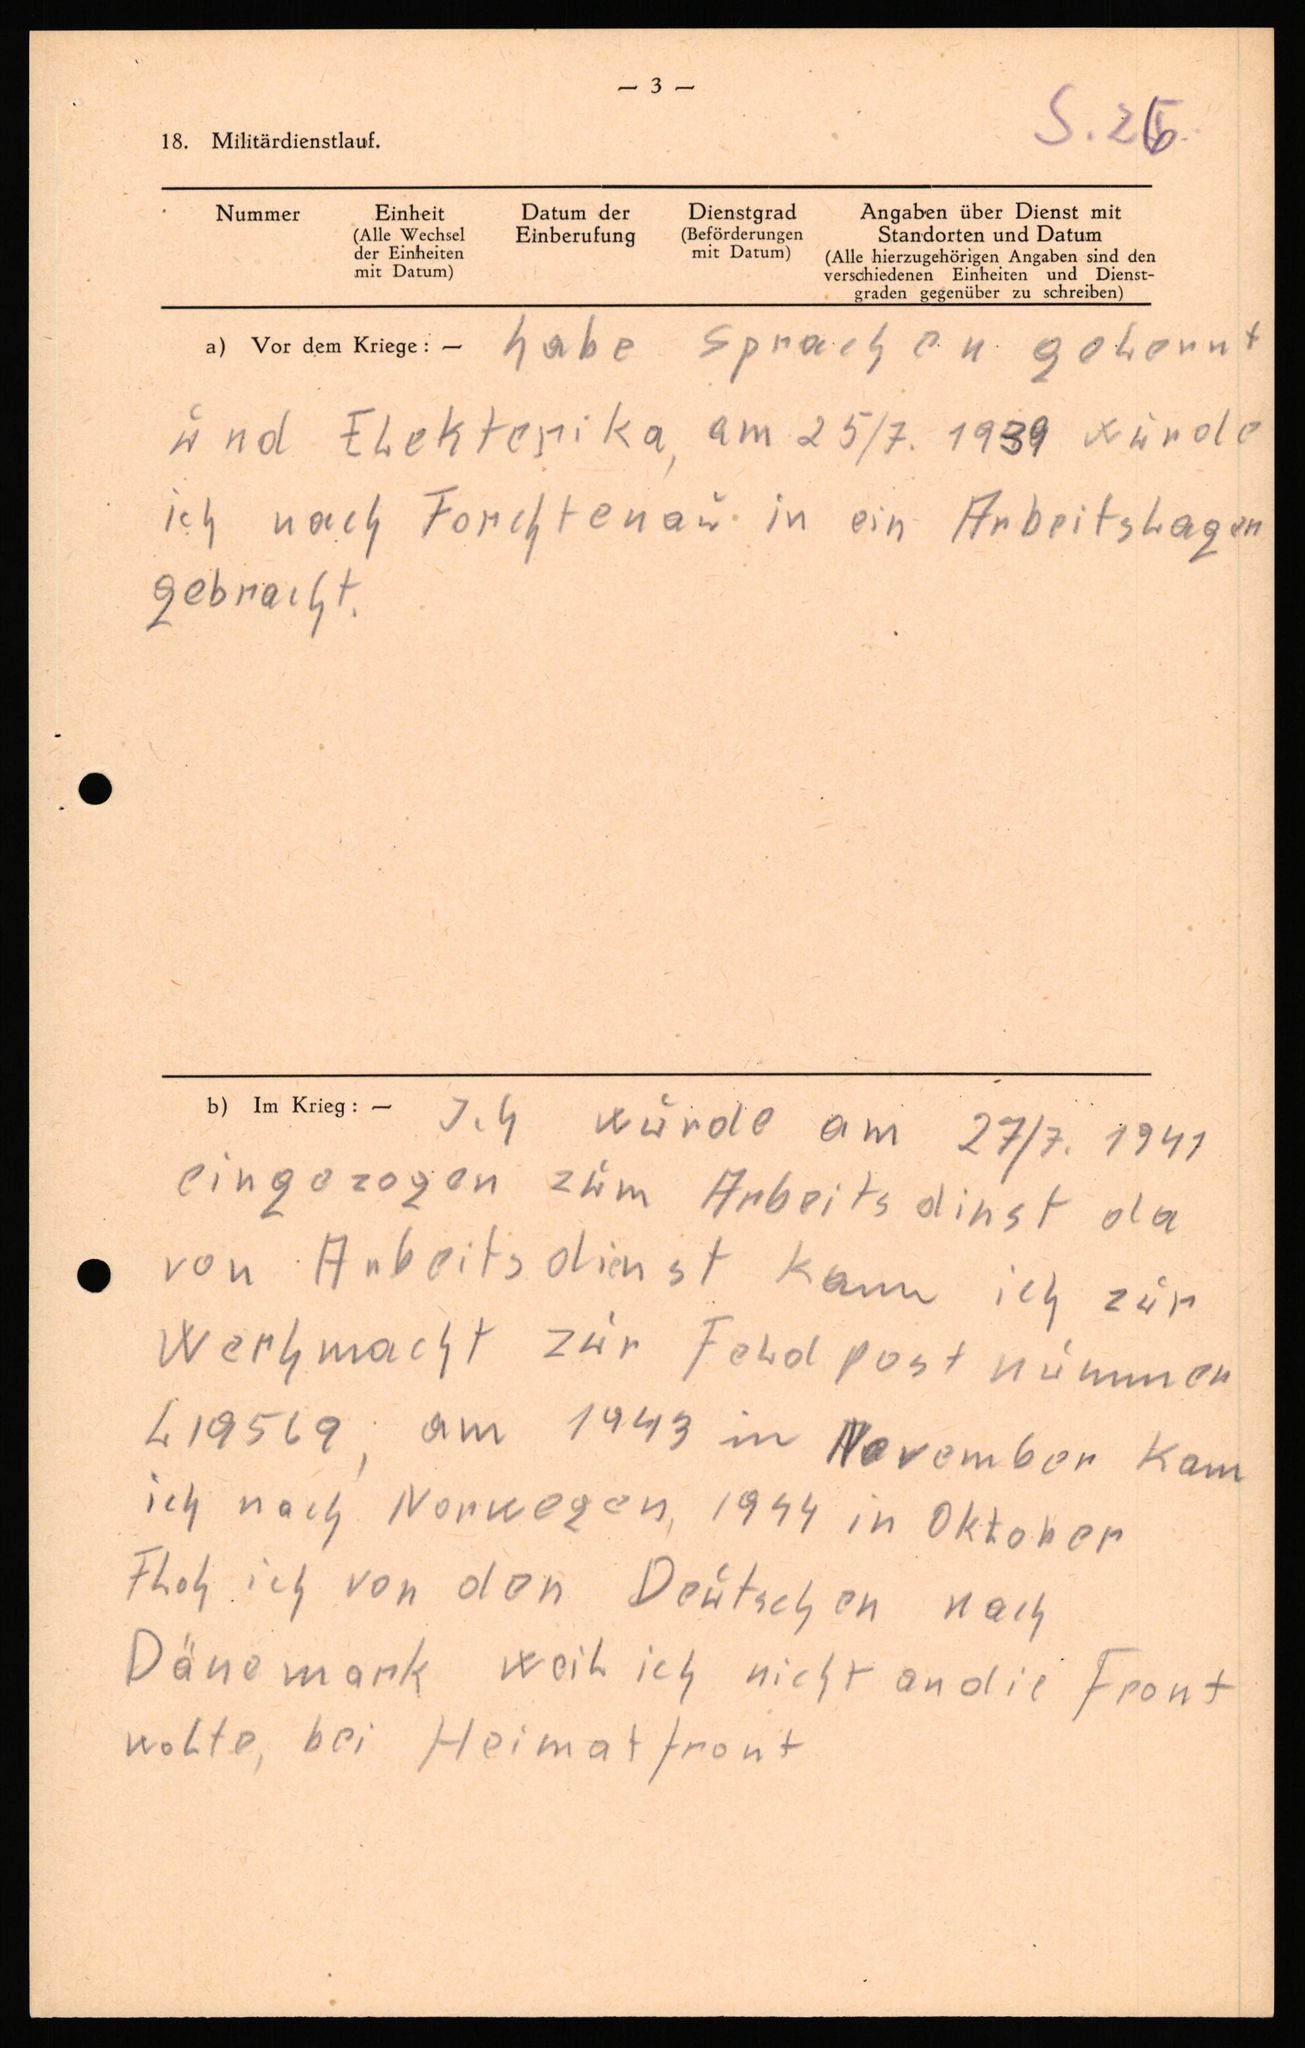 — 3 —
S. 26
18. Militärdienstlauf.
Nummer
Einheit
(Alle Wechsel
der Einheiten
mit Datum)
Datum der
Einberufung
Dienstgrad
(Beförderungen
mit Datum)
Angaben über Dienst mit
Standorten und Datum
(Alle hierzugehörigen Angaben sind den
verschiedenen Einheiten und Dienst-
graden gegenüber zu schreiben)
a) Vor dem Kriege: — habe Sprachen gelernt
und Elekterika, am 25/7. 1939 wurde
ich nach Forchtenau in ein Arbeitslager
gebracht.
b) Im Krieg: — Ich wurde am 27/7. 1941
eingezogen zum Arbeitsdinst da
von Arbeitsdienst kam ich zur
Werhmacht zur Feldpostnummer
L19569, am 1943 in November kam
ich nach Norwegen, 1944 in Oktober
Floh ich von den Deutschen nach
Dänemark weil ich nicht an die Front
wolte, bei Heimatfront